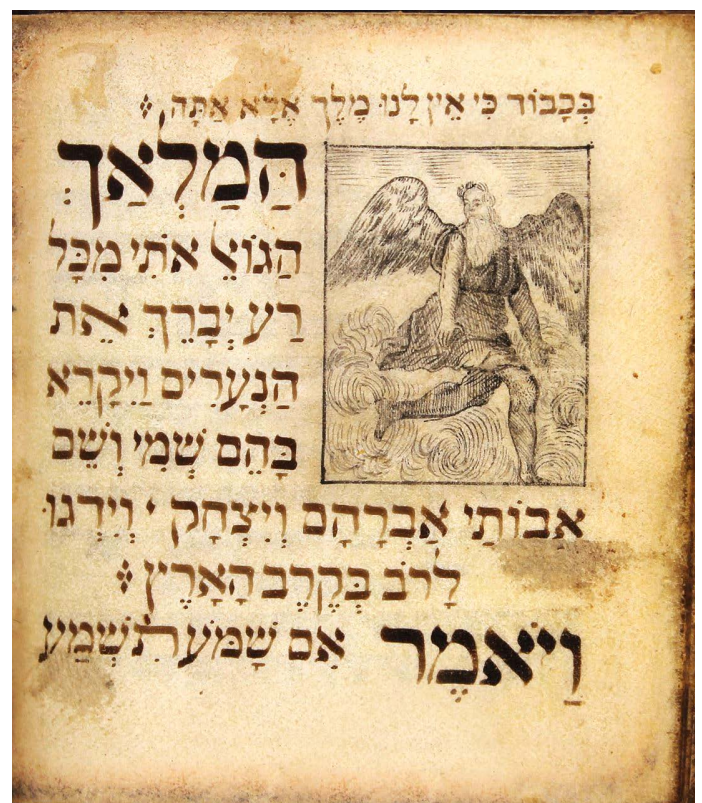 בְּכָבוֹד כִּי אֵין לָנוּ מֶלֶךְ אֶלָּא אַתָּה
הַמַּלְאַךְ
הַגּוֹאֵל אֹתִי מִכָּל
רַע יְבָרֵךְ אֶת
הַנְּעָרִים וְיִקָּרֵא
בָּהֶם שְׁמִי וְשֵׁם
אֲבוֹתַי אַבְרָהָם וְיִצְחָק וְיִדְגּוּ
לָרֹב בְּקֶרֶב הָאָרֶץ
וַיֹּאמֶר אִם שָׁמֹעַ תִּשְׁמַע